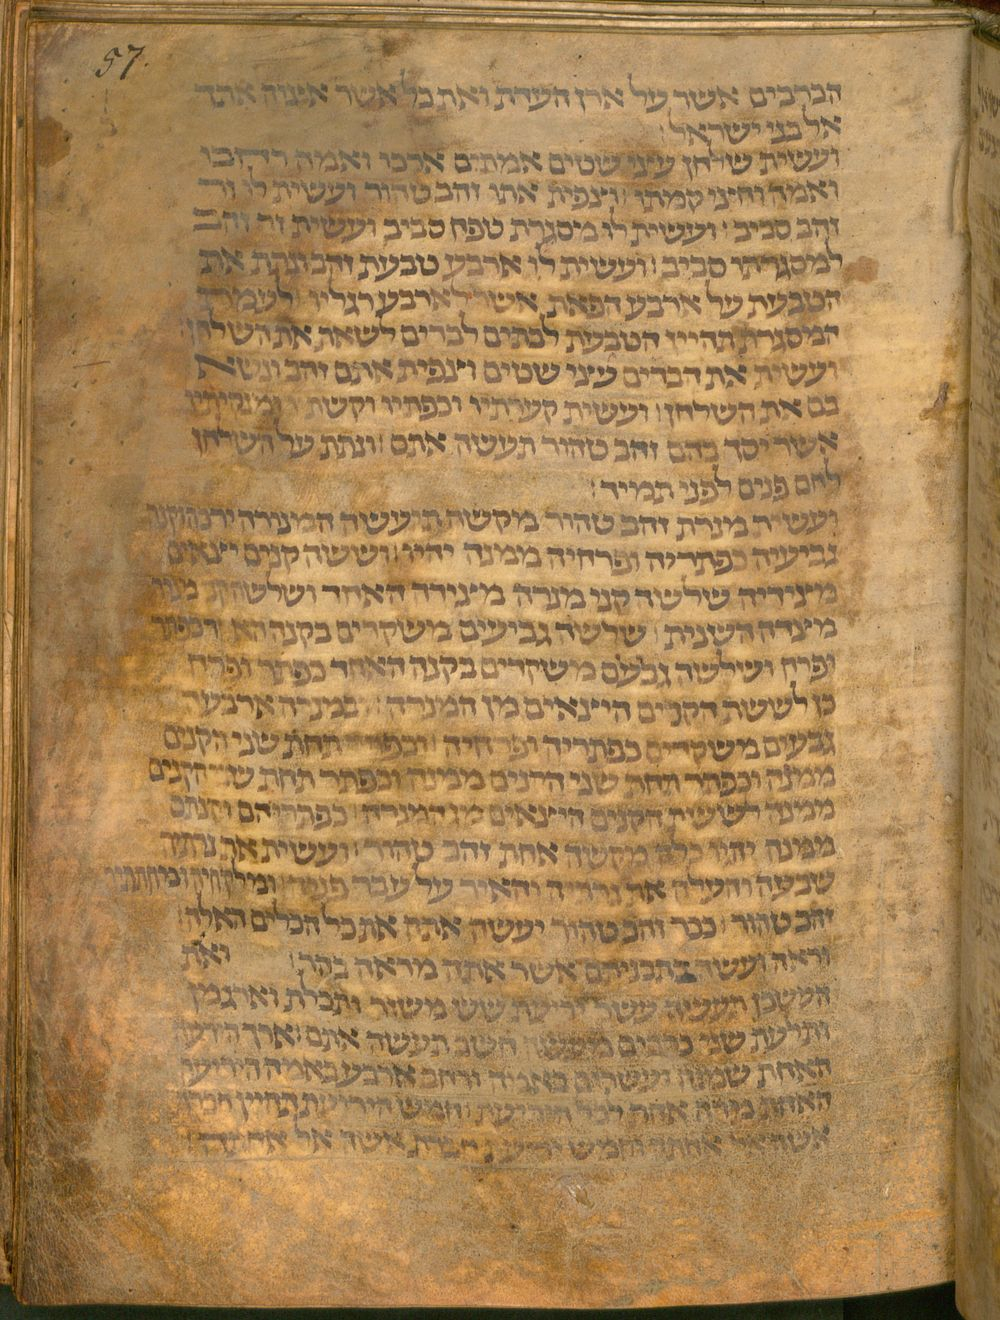 57.
הכרבים אשר על ארון העדת ואת כל אשר אצוה אתך
אל בני ישראל׃
ועשית שלחן עצי שטים אמתים ארכו ואמה רחבו
ואמה וחצי קמתו׃ וצפית אתו זהב טהור ועשית לו זר
זהב סביב׃ ועשית לו מסגרת טפח סביב ועשית זר זהב
למסגרתו סביב׃ ועשית לו ארבע טבעת זהב ונתת את
הטבעת על ארבע הפאת אשר לארבע רגליו׃ לעמת
המסגרת תהיין הטבעת לבתים לבדים לשאת את השלחן׃
ועשית את הבדים עצי שטים וצפית אתם זהב ונשא
בם את השלחן׃ ועשית קערתיו וכפתיו וקשתיו ומנקיתיו
אשר יסך בהם זהב טהור תעשה אתם׃ ונתת על השלחן
לחם פנים לפני תמיד׃
ועשית מנרת זהב טהור מקשה תיעשה המנורה ירכה וקנה
גביעיה כפתריה ופרחיה ממנה יהיו׃ וששה קנים יצאים
מצידיה שלשה קני מנרה מצידה האחד ושלשה קני מנרה
מצידה השנית׃ שלשה גביעים משקדים בקנה האחד כפתר
ופרח ושלשה גבעים משקדים בקנה האחד כפתר ופרח
כן לששת הקנים היצאים מן המנרה׃ ובמנרה ארבעה
גבעים משקדים כפתריה ופרחיה׃ וכפתר תחת שני הקנים
ממנה וכפתר תחת שני הקנים ממנה וכפתר תחת שני הקנים
ממנה לששת הקנים היצאים מן המנרה׃ כפתריהם וקנתם
ממנה יהיו כלה מקשה אחת זהב טהור׃ ועשית את נרתיה
שבעה והעלה את נרתיה והאיר על עבר פניה׃ ומלקחיה ומחתתיה
זהב טהור׃ ככר זהב טהור יעשה אתה את כל הכלים האלה׃
וראה ועשה בתבניתם אשר אתה מראה בהר׃ ואת
המשכן תעשה עשר יריעת שש משזר ותכלת וארגמן
ותולעת שני כרבים מעשה חשב תעשה אתם׃ ארך היריעה
האחת שמנה ועשרים באמה ורחב ארבע באמה היריעה
האחת מדה אחת לכל היריעת׃ חמש היריעת תהיין חברת
אשה אל אחתה וחמש יריעת חברת אשה אל אחתה׃